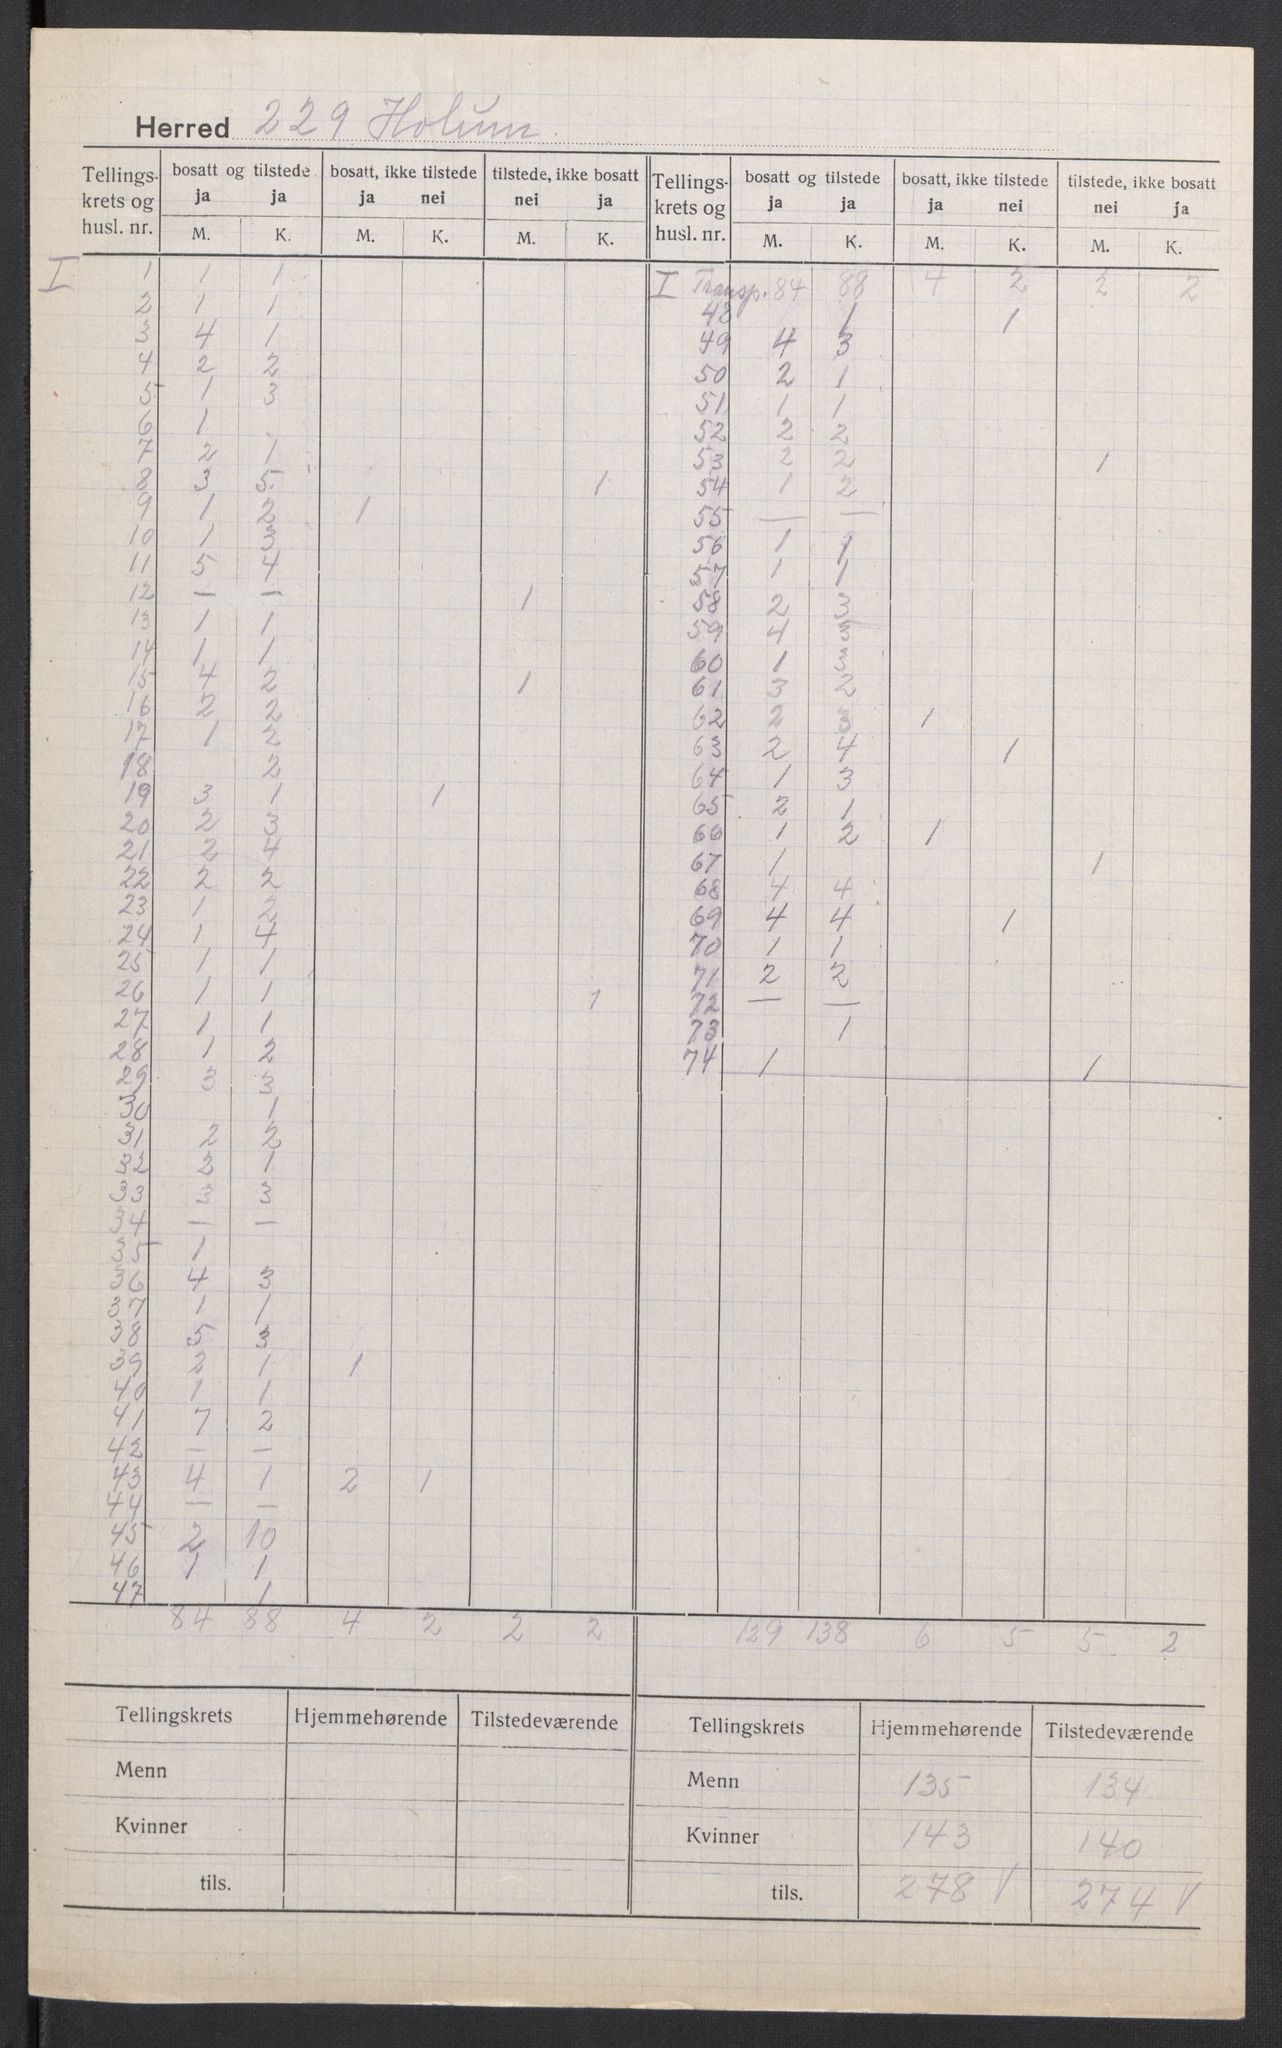 Herred 229 Holum.
Tellings- krets og husl. nr. | bosatt og tilstede ja ja | bosatt, ikke tilstede ja nei | tilstede, ikke bosatt nei ja | Tellings- krets og husl. nr. | bosatt og tilstede ja ja | bosatt, ikke tilstede ja nei | tilstede, ikke bosatt nei ja
M. K. M. K. M. K. M. K. M. K. M. K.
I 1 1 1
2 1 1
3 4 1
4 2 2
5 1 3
6 1
7 2 1
8 3 5 1
9 1 2 1
10 1 3
11 5 4
12 — — 1
13 1 1
14 1 1
15 4 2 1
16 2 2
17 1 2
18 2
19 3 1 1
20 2 3
21 2 4
22 2 2
23 1 2
24 1 4
25 1 1
26 1 1 1
27 1 1
28 1 2
29 3 3
30 1
31 2 2
32 2 1
33 3 3
34 — —
35 1
36 4 3
37 1 1
38 5 3
39 2 1 1
40 1 1
41 7 2
42 — —
43 4 1 2 1
44 — —
45 2 10
46 1 1
47 1
84 88 4 2 2 2
I Transp. 84 88 4 2 2 2
48 1 1
49 4 3
50 2 1
51 1 1
52 2 2
53 2 2 1
54 1 2
55 — —
56 1 1
57 1 1
58 2 3
59 4
60 1 3
61 3 2
62 2 3 1
63 2 4 1
64 1 3
65 2 1
66 1 2 1
67 1 1
68 4 4
69 4 4 1
70 1 1
71 2 2
72 — —
73 1
74 1 1
129 138 6 5 5 2
Tellingskrets Hjemmehørende Tilstedeværende
Menn
Kvinner
tils.
Tellingskrets Hjemmehørende Tilstedeværende
Menn 135 134
Kvinner 143 140
tils. 278 V 274 V